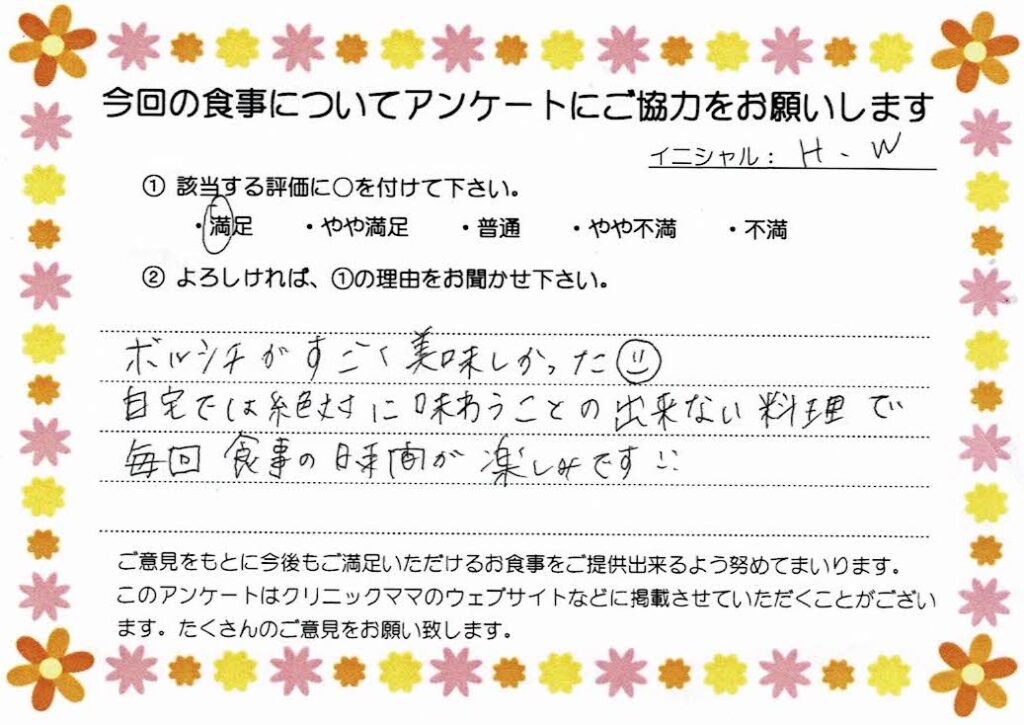 今回の食事についてアンケートにご協力をお願いします
イニシャル： H.W
① 該当する評価に○を付けて下さい。
・満足 ・やや満足 ・普通 ・やや不満 ・不満
② よろしければ、①の理由をお聞かせ下さい。
ボルシチがすごく美味しかった
自宅では絶対に味わうことの出来ない料理で
毎回食事の時間が楽しみです!!
ご意見をもとに今後もご満足いただけるお食事をご提供出来るよう努めてまいります。
このアンケートはクリニックママのウェブサイトなどに掲載させていただくことがござい
ます。たくさんのご意見をお願い致します。